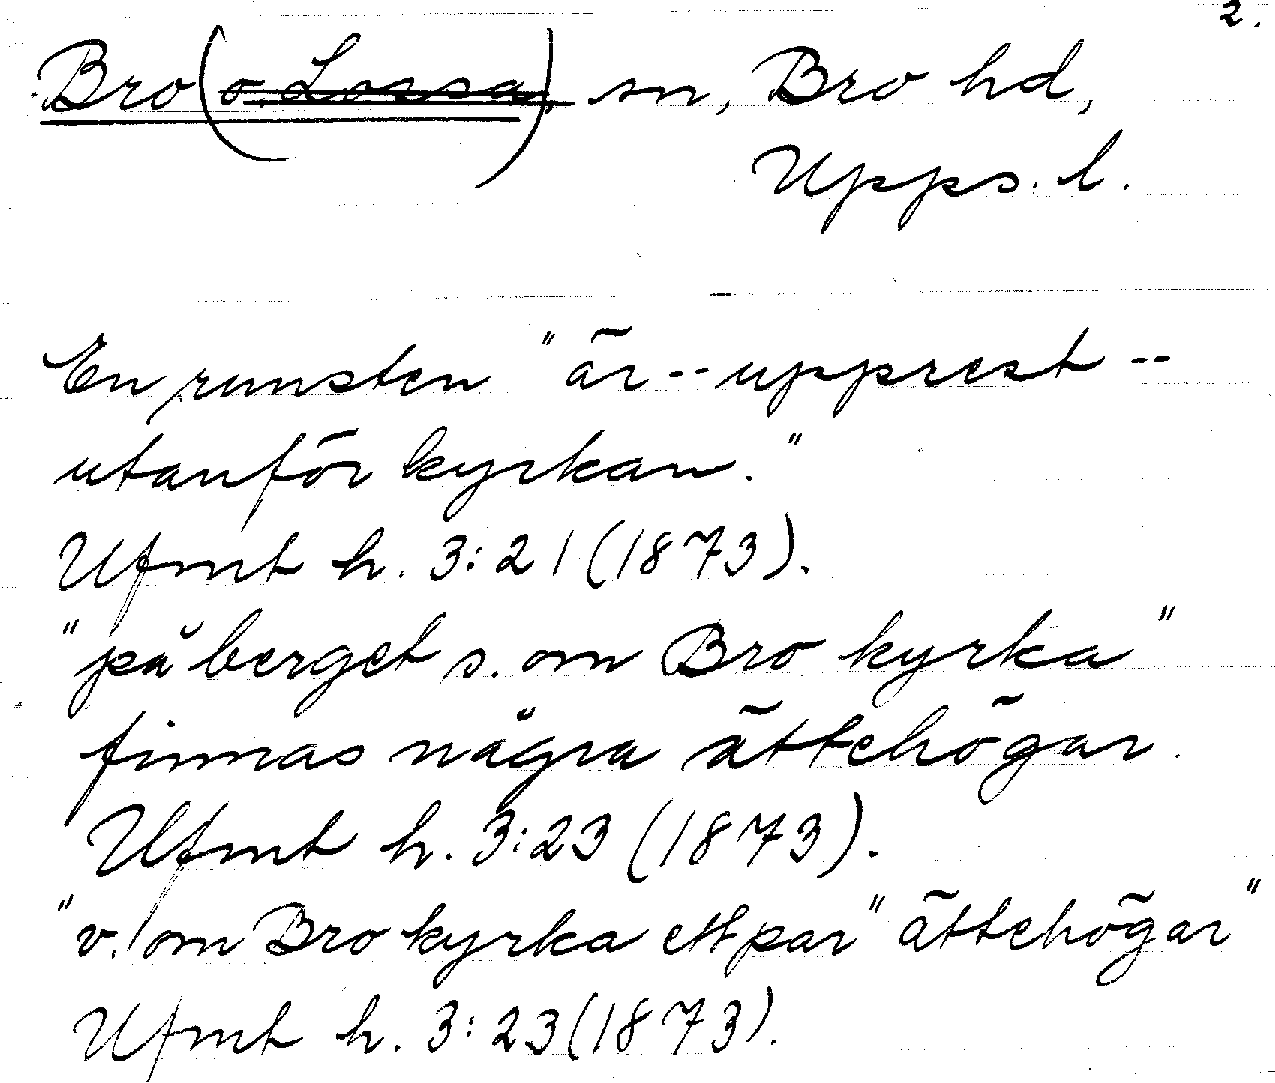 2.
Bro (o. Lossa), sn, Bro hd,
Upps. l.
En runsten "är -- upprest --
utanför kyrkan."
Ufmt h. 3:21 (1873).
"på berget s. om Bro kyrka"
finnas några ättehögar.
Ufmt h. 3:23 (1873).
"v. om Bro kyrka ett par "ättehögar"
Ufmt h. 3:23 (1873).